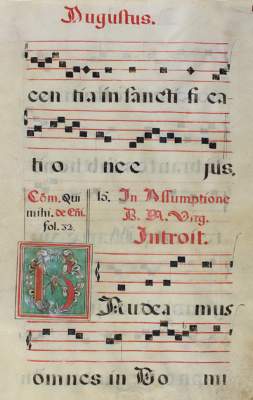 Augustus.
cen tia in sancti fi ca
ti o ne e jus.
Cõm. Qui
mihi. de Cõi.
fol. 32.
15. In Assumptione
B. M. Virg.
Introit.
GAudea mus
omnes in Do mi